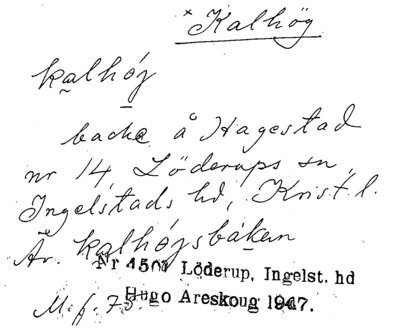 *Kalhög
kalhój
backe å Hagestad
nr 14, Löderups sn,
Ingelstads hd, Krist. l.
Äv. kalhójsbáken
Nr 4507 Löderup, Ingelst. hd
M. f. 75.
Hugo Areskoug 1947.